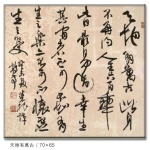 天地有萬古此身
不再得人生只百年
此日最易過幸生
其間者不可不知有
生之樂亦不可不懷虛
生之憂
天地有萬古 / 70×65